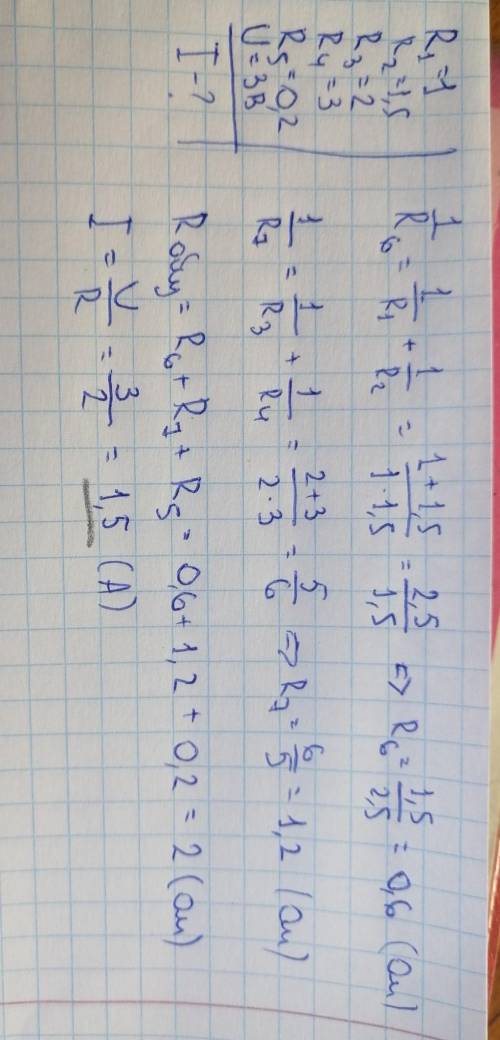 R₁=1
R₂=1,5
R₃=2
R₄=3
R₅=0,2
U=3В
I-?
1/R₆ = 1/R₁ + 1/R₂ = (1+1,5)/(1·1,5) = 2,5/1,5 => R₆ = 1,5/2,5 = 0,6 (Ом)
1/R₇ = 1/R₃ + 1/R₄ = (2+3)/(2·3) = 5/6 => R₇ = 6/5 = 1,2 (Ом)
Rобщ = R₆ + R₇ + R₅ = 0,6 + 1,2 + 0,2 = 2 (Ом)
I = U/R = 3/2 = 1,5 (А)